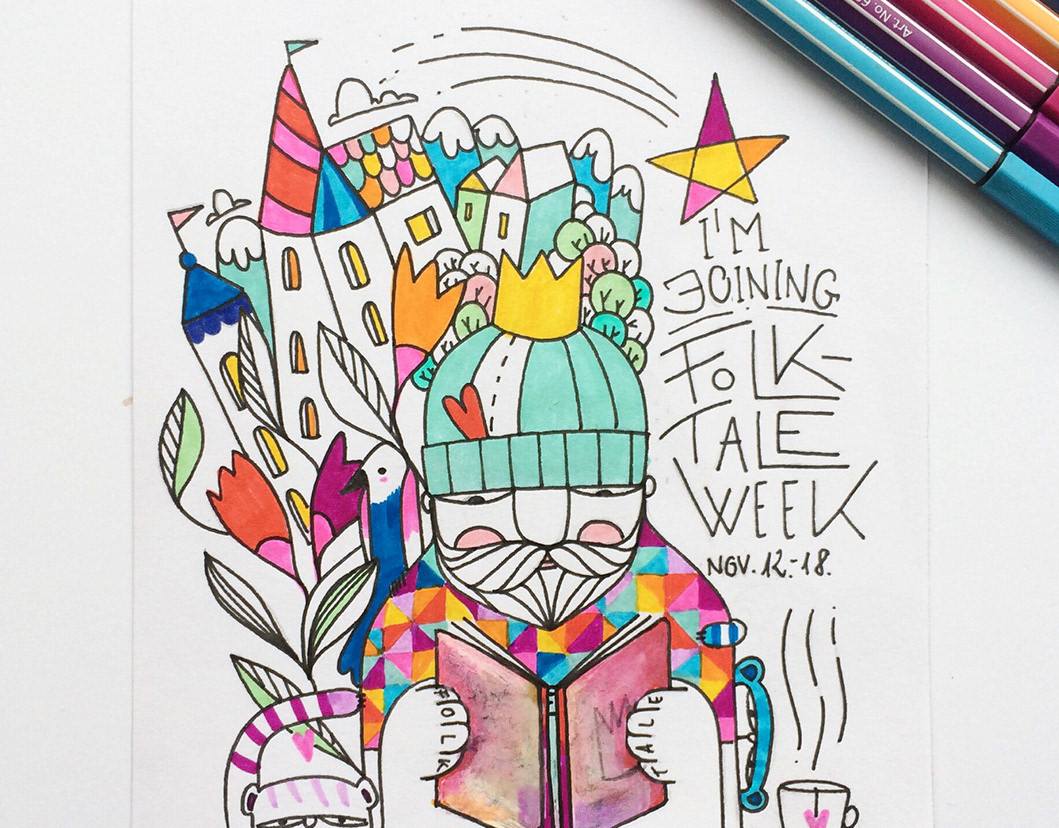 Art. No. 68
I'M
JOINING
FOLK-
TALE
WEEK
NOV. 12.-18.
FOLK
TALE